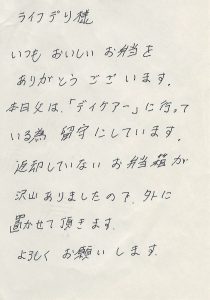 ライフデリ様
いつも おいしい お弁当を
ありがとう ございます。
本日父は、「デイケアー」に行って
いる為 留守にしています。
返却していない お弁当箱が
沢山ありましたので、外に
置かせて頂きます。
よろしく お願いします。